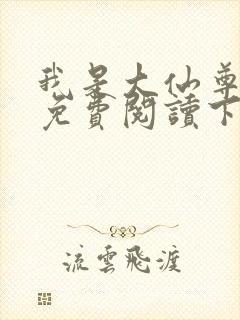 我是大仙尊
免費閱讀下
流雲飛渡